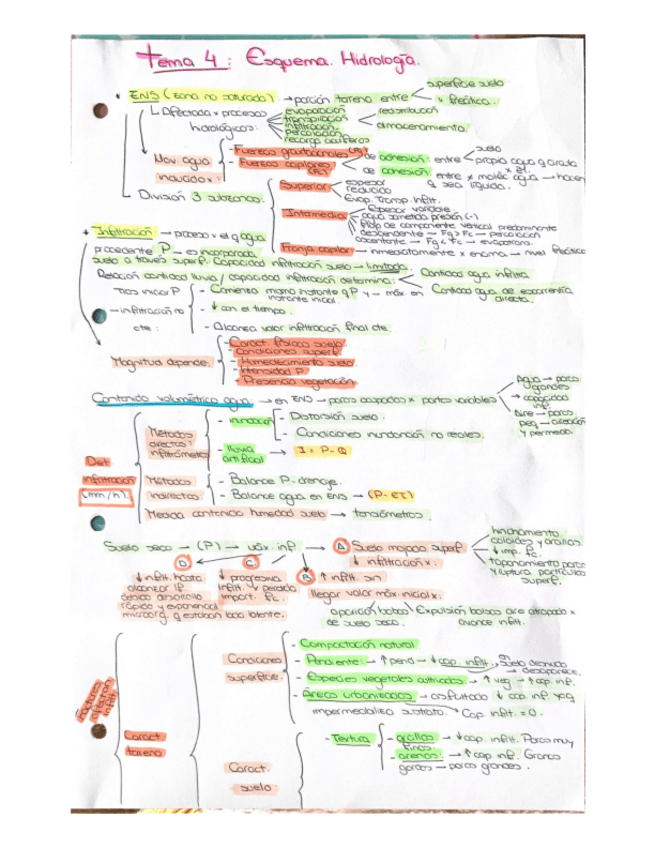 Tema 4: Esquema. Hidrología.
superficie suelo
* ENS (zona no saturada) → porción terreno entre
x freática.
↳ Afectada x procesos hidrológicos:
evaporación
transpiración
infiltración
percolación
recarga acuíferos
redistribución
almacenamiento
Mov. agua inducido x:
- Fuerzas gravitacionales (Fg)
- Fuerzas capilares (Fc)
de adhesión: entre
suelo
propia agua q circula
x él.
de cohesión: entre x moléc agua → hacen
q sea líquida.
División 3 subzonas:
Superior:
espesor reducido
Evap. Transp. Infilt.
Intermedia:
Espesor variable.
agua sometida presión (-)
flujo de componente vertical predominante
descendente → Fg > Fc → percolación
ascendente → Fg < Fc → evaporans.
Franja capilar → inmediatamente x encima → nivel freático
* Infiltración → proceso x el q agua
procedente P → es incorporada
suelo a través superf. Capacidad infiltración suelo → limitada
Relación cantidad lluvia / capacidad infiltración determina:
Cantidad agua infiltra
Cantidad agua de escorrentía directa.
Tras iniciar P
→ infiltración no cte:
- Comienza mismo instante q P y → máx. en
instante inicial.
- ↓ con el tiempo.
- Alcanza valor infiltración final cte.
Magnitud depende:
- Caract. físicas suelo.
- Condiciones superf.
- Humedecimiento suelo.
- Intensidad P
- Presencia vegetación.
Contenido volumétrico agua → en ENS → poros ocupados x partes variables
Agua → poros grandes
→ capacidad inf.
Aire → poros peq → aireación y permeab.
Det infiltración (mm/h)
Métodos directos: infiltrómetro
- inundación
- Distorsión suelo.
- Condiciones inundación no reales.
- lluvia artificial → I = P - Q
Métodos indirectos
- Balance P - drenaje.
- Balance agua en ENS → (P - ET)
Medida contenido humedad suelo → tensiómetros.
Suelo seco → (P) → máx. inf. → A Suelo mojado superf.
↓ infiltración x:
hinchamiento coloides y arcillas.
↓ imp. fc.
taponamiento poros y ruptura partículas superf.
D
↓ infilt. hasta alcanzar If
debido desarrollo rápido y exponencial
microorg. q estaban lado latente.
C
↓ progresiva infilt → perdida import. fc.
B ↑ infilt. sin
llegar valor máx. inicial x:
aparición bolsas de suelo seco.
Expulsión bolsas aire atrapado x avance infilt.
Factores infilt
Caract. terreno
Condiciones superficie:
- Compactación natural
- Pendiente: → ↑ pend → ↓ cap. infilt. en suelo desnudo → desaparece.
- Especies vegetales cultivadas → ↑ veg → ↑ cap. inf.
- Áreas urbanizadas → asfaltado ↓ cap. inf.
impermeabiliza sustrato. Cap. infilt. = 0.
Caract. suelo:
- Textura
- arcillas → ↓ cap. infilt. Poros muy finos.
- arenas: → ↑ cap inf. Granos
gordos → poros grandes.